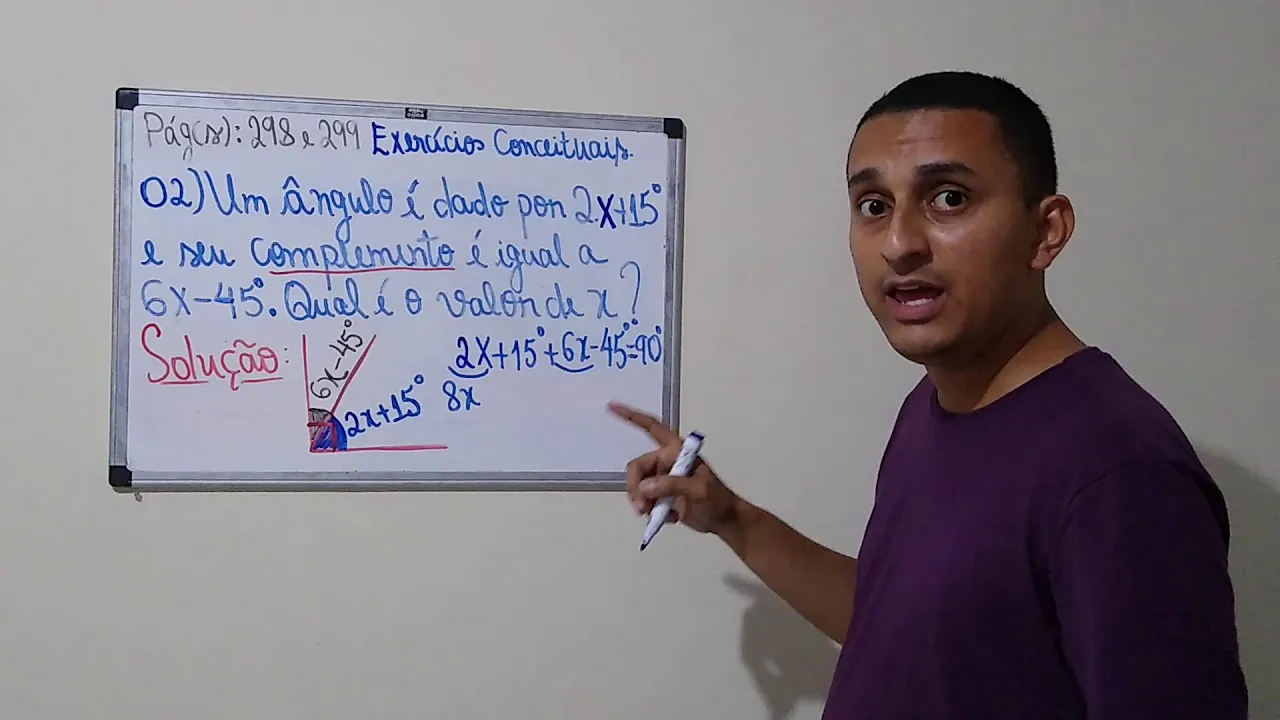 Pág(s): 298 e 299 Exercícios Conceituais.
02) Um ângulo é dado por 2x+15°
e seu complemento é igual a
6x-45°. Qual é o valor de x?
Solução:
6x-45°
2x+15°
2x+15°+6x-45°=90°
8x